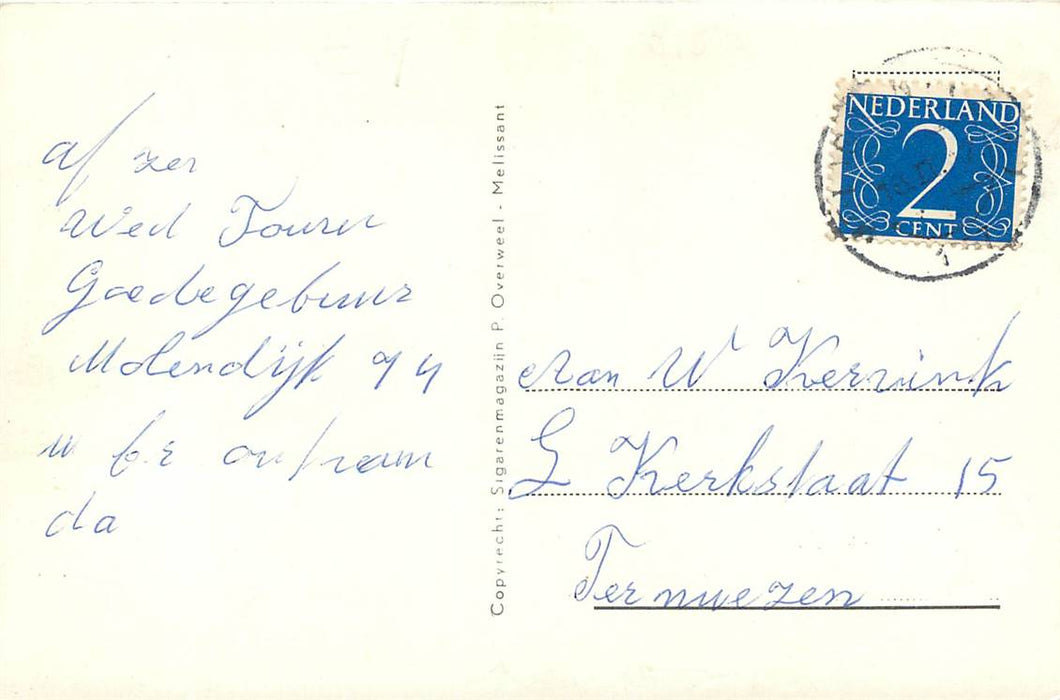 af zer
Wed Tourr
Goedegebuur
Molendijk 94
da
Copyrecht: Sigarenmagazijn P. Overweel - Melissant
NEDERLAND
2
CENT
Aan W Kervink
L Kerkstaat 15
Ternuezen